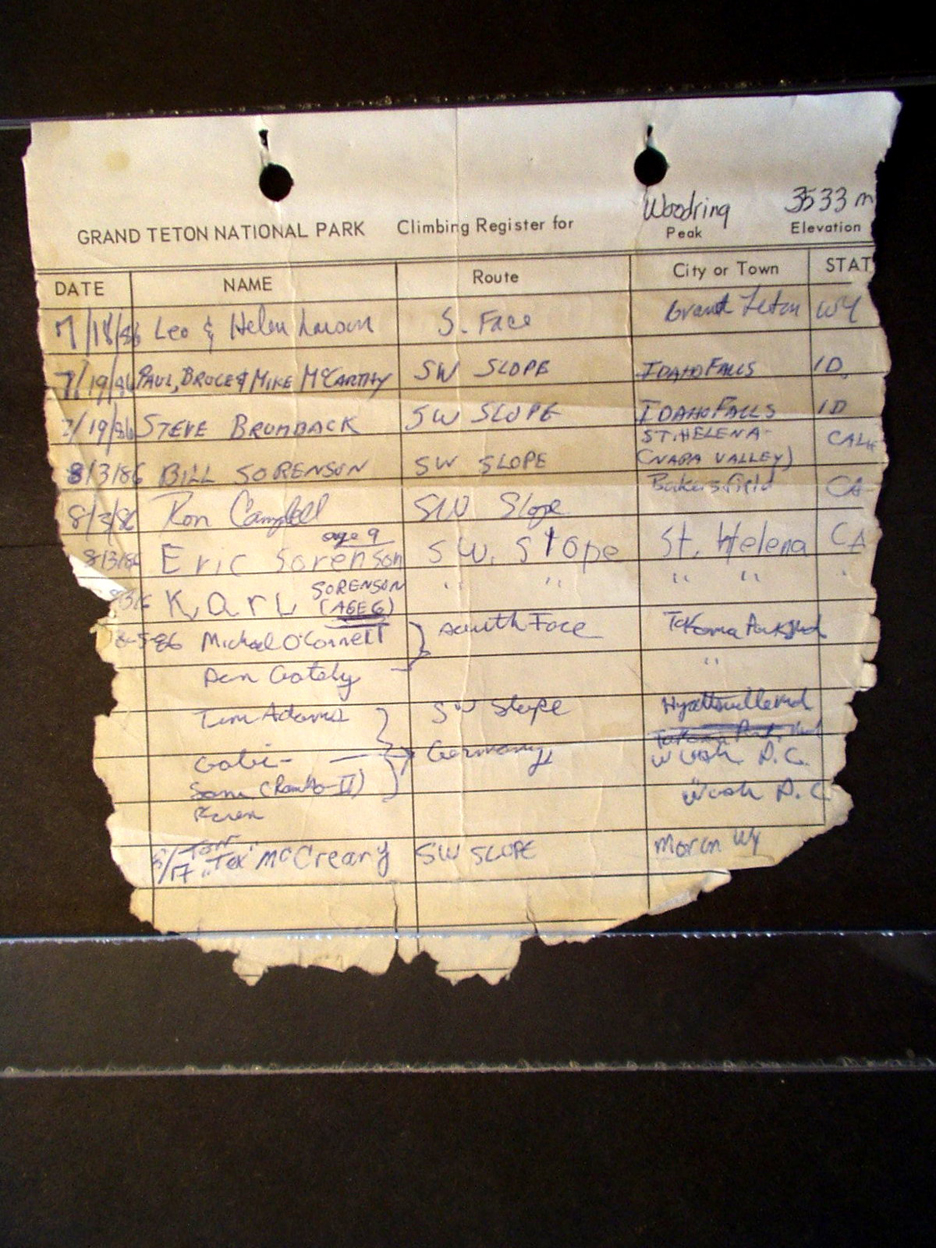 Woodring 3533 m
GRAND TETON NATIONAL PARK Climbing Register for Peak Elevation
DATE NAME Route City or Town STAT
7/18/86 Leo & Helen Larson S. Face Grand Teton WY
7/19/86 PAUL, BRUCE & MIKE McCARTHY SW SLOPE IDAHO FALLS ID.
7/19/86 STEVE BRUMBACK SW SLOPE IDAHO FALLS ID
8/3/86 BILL SORENSON SW SLOPE ST. HELENA- CALIF
(NAPA VALLEY)
8/3/86 Ron Campbell SW Slope Bakersfield CA
8/3/86 Eric Sorenson age 9 SW. Slope St. Helena CA
8/3/86 Karl SORENSON (AGE 6) " " " " "
8-5-86 Michael O'Connell South Face Takoma Park, Md
Dan Gately "
Tim Adams SW Slope Hyattsville Md
Gabi- Germany Wash D.C.
Sam (Rambo-II) Wash D.C
Karen
8/17 Tom "Tex" McCreary SW SLOPE Moran Wy